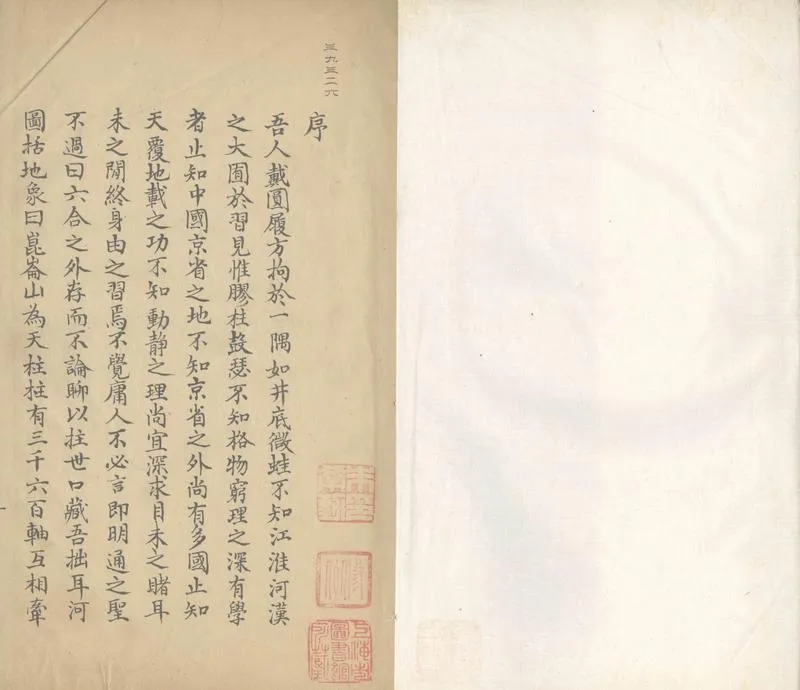 三九三二六
序
吾人戴圓履方拘於一隅如井底微蛙不知江淮河漢
之大囿於習見惟膠柱鼓瑟不知格物窮理之深有學
者止知中國京省之地不知京省之外尚有多國止知
天覆地載之功不知動靜之理尚宜深求目未之睹耳
未之聞終身由之習焉不覺庸人不必言即明通之聖
不過曰六合之外存而不論聊以拄世口藏吾拙耳河
圖括地象曰崑崙山為天柱柱有三千六百軸互相牽
上海市圖書館所藏